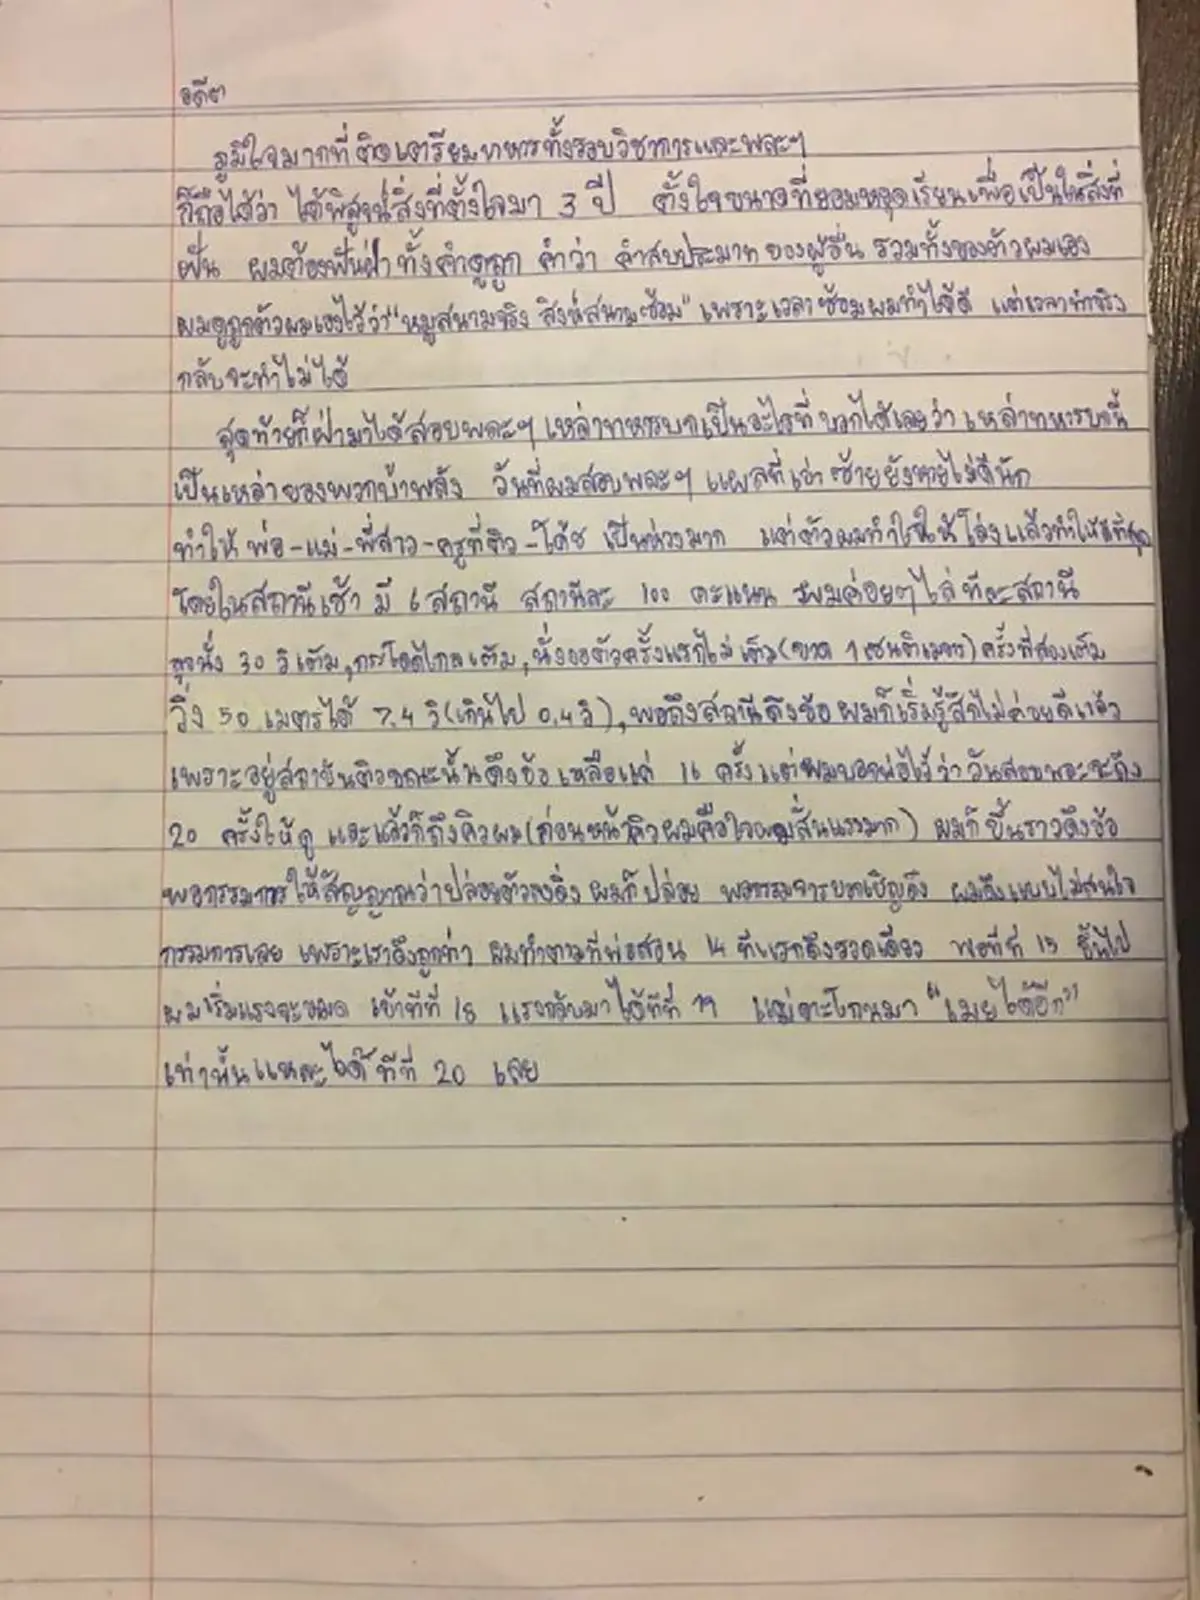 อดีต
ภูมิใจมากที่ติดเตรียมทหารทั้งรอบวิชาการและพละๆ
ก็ถือได้ว่า ได้พิสูจน์สิ่งที่ตั้งใจมา 3 ปี ตั้งใจขนาดที่ยอมหยุดเรียนเพื่อเป็นในสิ่งที่
ฝัน ผมต้องฟันฝ่า ทั้งคำดูถูก คำว่า คำสบประมาท ของผู้อื่น รวมทั้งของตัวผมเอง
ผมดูถูกตัวผมเองไว้ว่า "หมูสนามจริง สิงห์สนามซ้อม" เพราะเวลาซ้อมผมทำได้ดี แต่เวลาทำจริง
กลับจะทำไม่ได้
สุดท้ายก็ฝ่ามาได้สอบพละๆ เหล่าทหารบกเป็นอะไรที่ บอกได้เลยว่า เหล่าทหารบกนี้
เป็นเหล่าของพวกบ้าพลัง วันที่ผมสอบพละๆ แผลที่เข่าซ้ายยังหายไม่ดีนัก
ทำให้ พ่อ-แม่-พี่สาว-ครูที่ติว-โค้ช เป็นห่วงมาก แต่ตัวผมทำใจให้โล่งแล้วทำให้ดีที่สุด
โดยในสถานีเช้า มี 6 สถานี สถานีละ 100 คะแนน ผมค่อยๆ ไล่ทีละสถานี
ลุกนั่ง 30 วิเต็ม, กระโดดไกลเต็ม, นั่งงอตัวครั้งแรกไม่เต็ม (ขาด 1 เซนติเมตร) ครั้งที่สองเต็ม
วิ่ง 50 เมตรได้ 7.4 วิ (เกินไป 0.4 วิ), พอถึงสถานีดึงข้อ ผมก็เริ่มรู้สึกไม่ค่อยดีแล้ว
เพราะอยู่สถาบันติวขณะนั้นดึงข้อ เหลือแค่ 16 ครั้ง แต่ผมบอกพ่อไว้ว่า วันสอบพละจะดึง
20 ครั้งให้ดู และแล้วก็ถึงคิวผม (ก่อนหน้าคิวผมคือใจผมสั่นแรงมาก) ผมก็ขึ้นราวดึงข้อ
พอกรรมการให้สัญญาณว่าปล่อยตัวลงดิ่ง ผมก็ปล่อย พอกรรมการบอกเชิญดึง ผมดึงแบบไม่สนใจ
กรรมการเลย เพราะเราดึงถูกท่า ผมทำตามที่พ่อสอน 14 ทีแรกดึงรวดเดียว พอทีที่ 15 ขึ้นไป
ผมเริ่มแรงจะหมด เข้าทีที่ 18 แรงกลับมาได้ทีที่ 19 แม่ตะโกนมา "เมยได้อีก"
เท่านั้นแหละได้ทีที่ 20 เลย